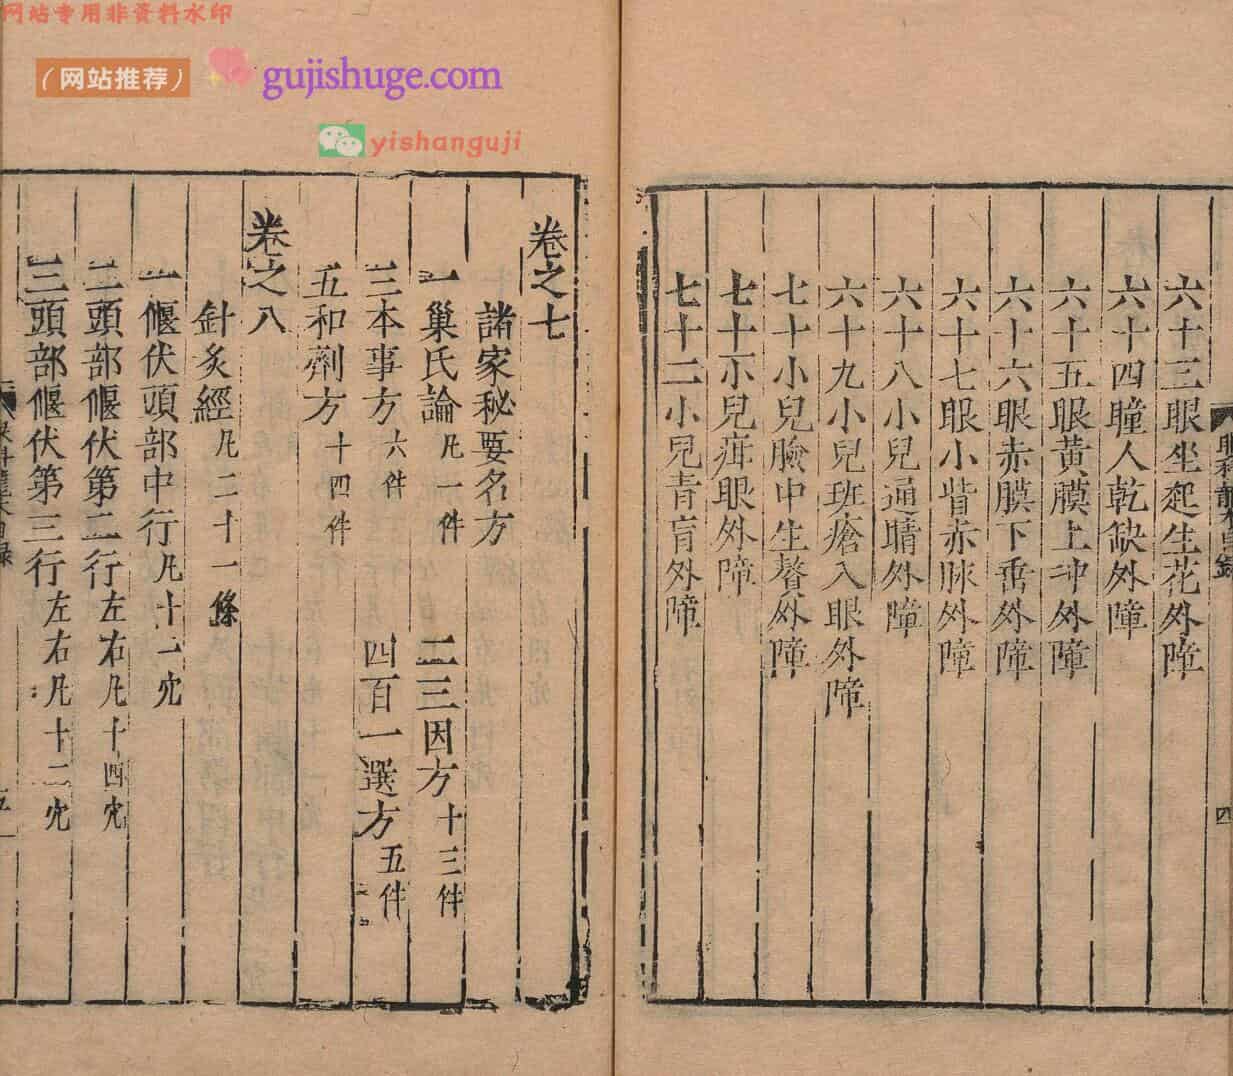 网站专用非资料水印
（网站推荐）
gujishuge.com
yishanguji
六十三眼坐起生花外障
六十四瞳人乾缺外障
六十五眼黄膜上冲外障
六十六眼赤膜下垂外障
六十七眼小眥赤脉外障
六十八小兒通睛外障
六十九小兒班瘡入眼外障
七十小兒瞼中生贅外障
七十一小兒疳眼外障
七十二小兒青盲外障
卷之七
諸家秘要名方
一巢氏論凡一件 二三因方十三件
三本事方六件 四百一選方五件
五和劑方十四件
卷之八
針灸經凡二十一條
一偃伏頭部中行凡十一穴
二頭部偃伏第二行左右凡十四穴
三頭部偃伏第三行左右凡十二穴